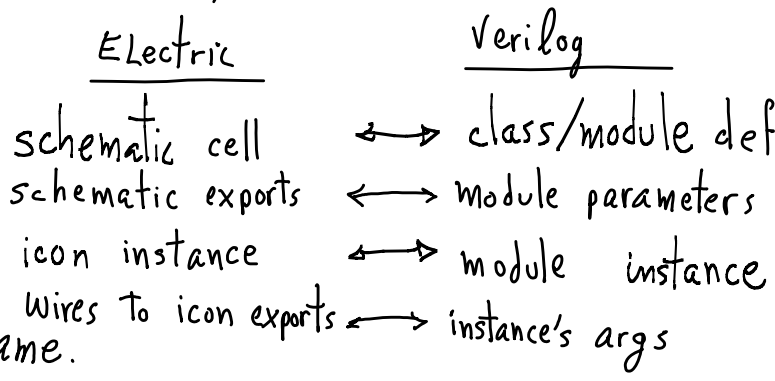 Electric Verilog
schematic cell ⟷ class/module def
schematic exports ⟷ module parameters
icon instance ⟷ module instance
Wires to icon exports ⟷ instance's args